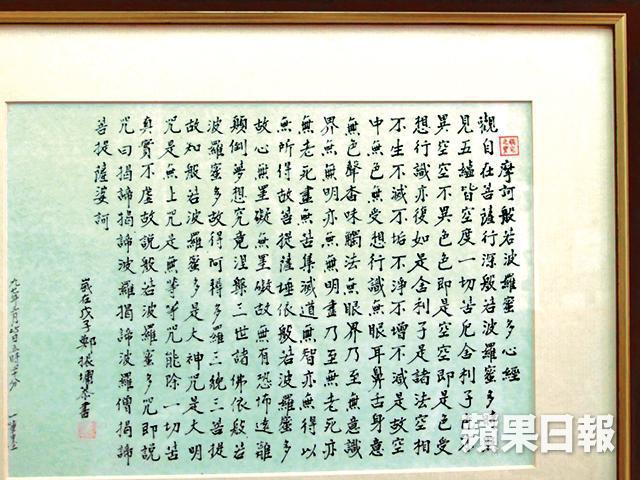 摩訶般若波羅蜜多心經
觀自在菩薩行深般若波羅蜜多
見五蘊皆空度一切苦厄舍利子色不
異空空不異色色即是空空即是色受
想行識亦復如是舍利子是諸法空相
不生不滅不垢不淨不增不減是故空
中無色無受想行識無眼耳鼻舌身意
無色聲香味觸法無眼界乃至無意識
界無無明亦無無明盡乃至無老死亦
無老死盡無苦集滅道無智亦無得以
無所得故菩提薩埵依般若波羅蜜多
故心無罣礙無罣礙故無有恐怖遠離
顛倒夢想究竟涅槃三世諸佛依般若
波羅蜜多故得阿耨多羅三藐三菩提
故知般若波羅蜜多是大神咒是大明
咒是無上咒是無等等咒能除一切苦
真實不虛故說般若波羅蜜多咒即說
咒曰揭諦揭諦波羅揭諦波羅僧揭諦
菩提薩婆訶
歲在戊子鄭振恭書
蘋果日報